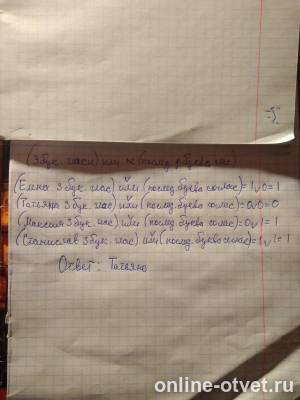 (3 бук. гласн) или (послед. буква
(Елена 3 бук. глас) или (послед. буква соглас) = 1 v 0 = 1
(Татьяна 3 бук. глас) или (послед. буква соглас) = 0 v 0 = 0
(Максим 3 бук. глас) или (послед. буква соглас) = 0 v 1 = 1
(Станислав 3 бук. глас) или (послед. буква соглас) = 1 v 1 = 1
Ответ: Татьяна
online-otvet.ru